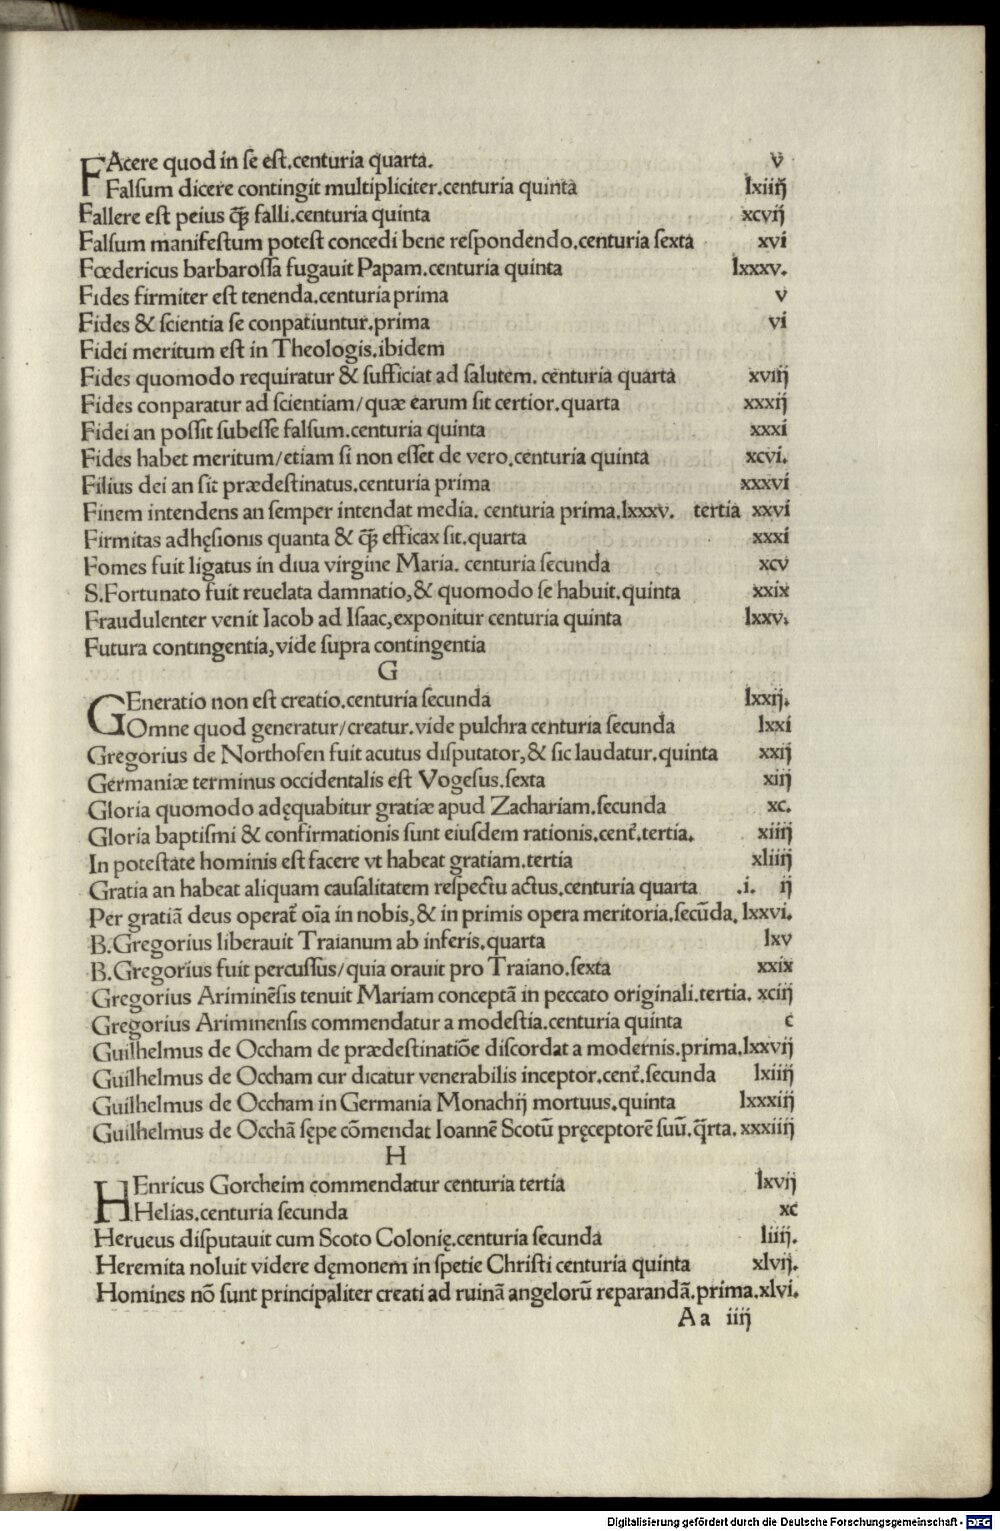 FAcere quod in ſe eſt.centuria quarta. v
Falſum dicere contingit multipliciter.centuria quinta lxiiij
Fallere eſt peius q̄ꝫ falli.centuria quinta xcvij
Falſum manifeſtum poteſt concedi bene reſpondendo.centuria ſexta xvi
Fœdericus barbaroſſa fugauit Papam.centuria quinta lxxxv.
Fides firmiter eſt tenenda.centuria prima v
Fides & ſcientia ſe conpatiuntur.prima vi
Fidei meritum eſt in Theologis.ibidem
Fides quomodo requiratur & ſufficiat ad ſalutem. centuria quarta xviij
Fides conparatur ad ſcientiam/quæ earum ſit certior.quarta xxxij
Fidei an poſſit ſubeſſe falſum.centuria quinta xxxi
Fides habet meritum/etiam ſi non eſſet de vero.centuria quinta xcvi.
Filius dei an ſit prædeſtinatus.centuria prima xxxvi
Finem intendens an ſemper intendat media. centuria prima.lxxxv. tertia xxvi
Firmitas adhęſionis quanta & q̄ꝫ efficax ſit.quarta xxxi
Fomes fuit ligatus in diua virgine Maria. centuria ſecunda xcv
S.Fortunato fuit reuelata damnatio,& quomodo ſe habuit.quinta xxix
Fraudulenter venit Iacob ad Iſaac,exponitur centuria quinta lxxv.
Futura contingentia,vide ſupra contingentia
G
GEneratio non eſt creatio.centuria ſecunda lxxij.
Omne quod generatur/creatur.vide pulchra centuria ſecunda lxxi
Gregorius de Northofen fuit acutus diſputator,& ſic laudatur.quinta xxij
Germaniæ terminus occidentalis eſt Vogeſus.ſexta xij
Gloria quomodo adęquabitur gratiæ apud Zachariam.ſecunda xc.
Gloria baptiſmi & confirmationis ſunt eiuſdem rationis.cent̄.tertia. xiiij
In poteſtate hominis eſt facere vt habeat gratiam.tertia xliiij
Gratia an habeat aliquam cauſalitatem reſpectu actus.centuria quarta .i. ij
Per gratiā deus operat̄ oīa in nobis,& in primis opera meritoria.ſecūda. lxxvi.
B.Gregorius liberauit Traianum ab inferis.quarta lxv
B.Gregorius fuit percuſſus/quia orauit pro Traiano.ſexta xxix
Gregorius Ariminēſis tenuit Mariam conceptā in peccato originali.tertia. xciij
Gregorius Ariminenſis commendatur a modeſtia.centuria quinta c
Guilhelmus de Occham de prædeſtinatiōe diſcordat a modernis.prima.lxxvij
Guilhelmus de Occham cur dicatur venerabilis inceptor.cent̄.ſecunda lxiiij
Guilhelmus de Occham in Germania Monachij mortuus.quinta lxxxiij
Guilhelmus de Occhā ſępe cōmendat Ioannē Scotū pręceptorē ſuū.q̄rta.xxxiiij
H
HEnricus Gorcheim commendatur centuria tertia lxvij
Helias.centuria ſecunda xc
Herueus diſputauit cum Scoto Colonię.centuria ſecunda liiij.
Heremita noluit videre dęmonem in ſpetie Chriſti centuria quinta xlvij.
Homines nō ſunt principaliter creati ad ruinā angelorū reparandā.prima.xlvi.
Aa iiij
Digitalisierung gefördert durch die Deutsche Forschungsgemeinschaft - DFG